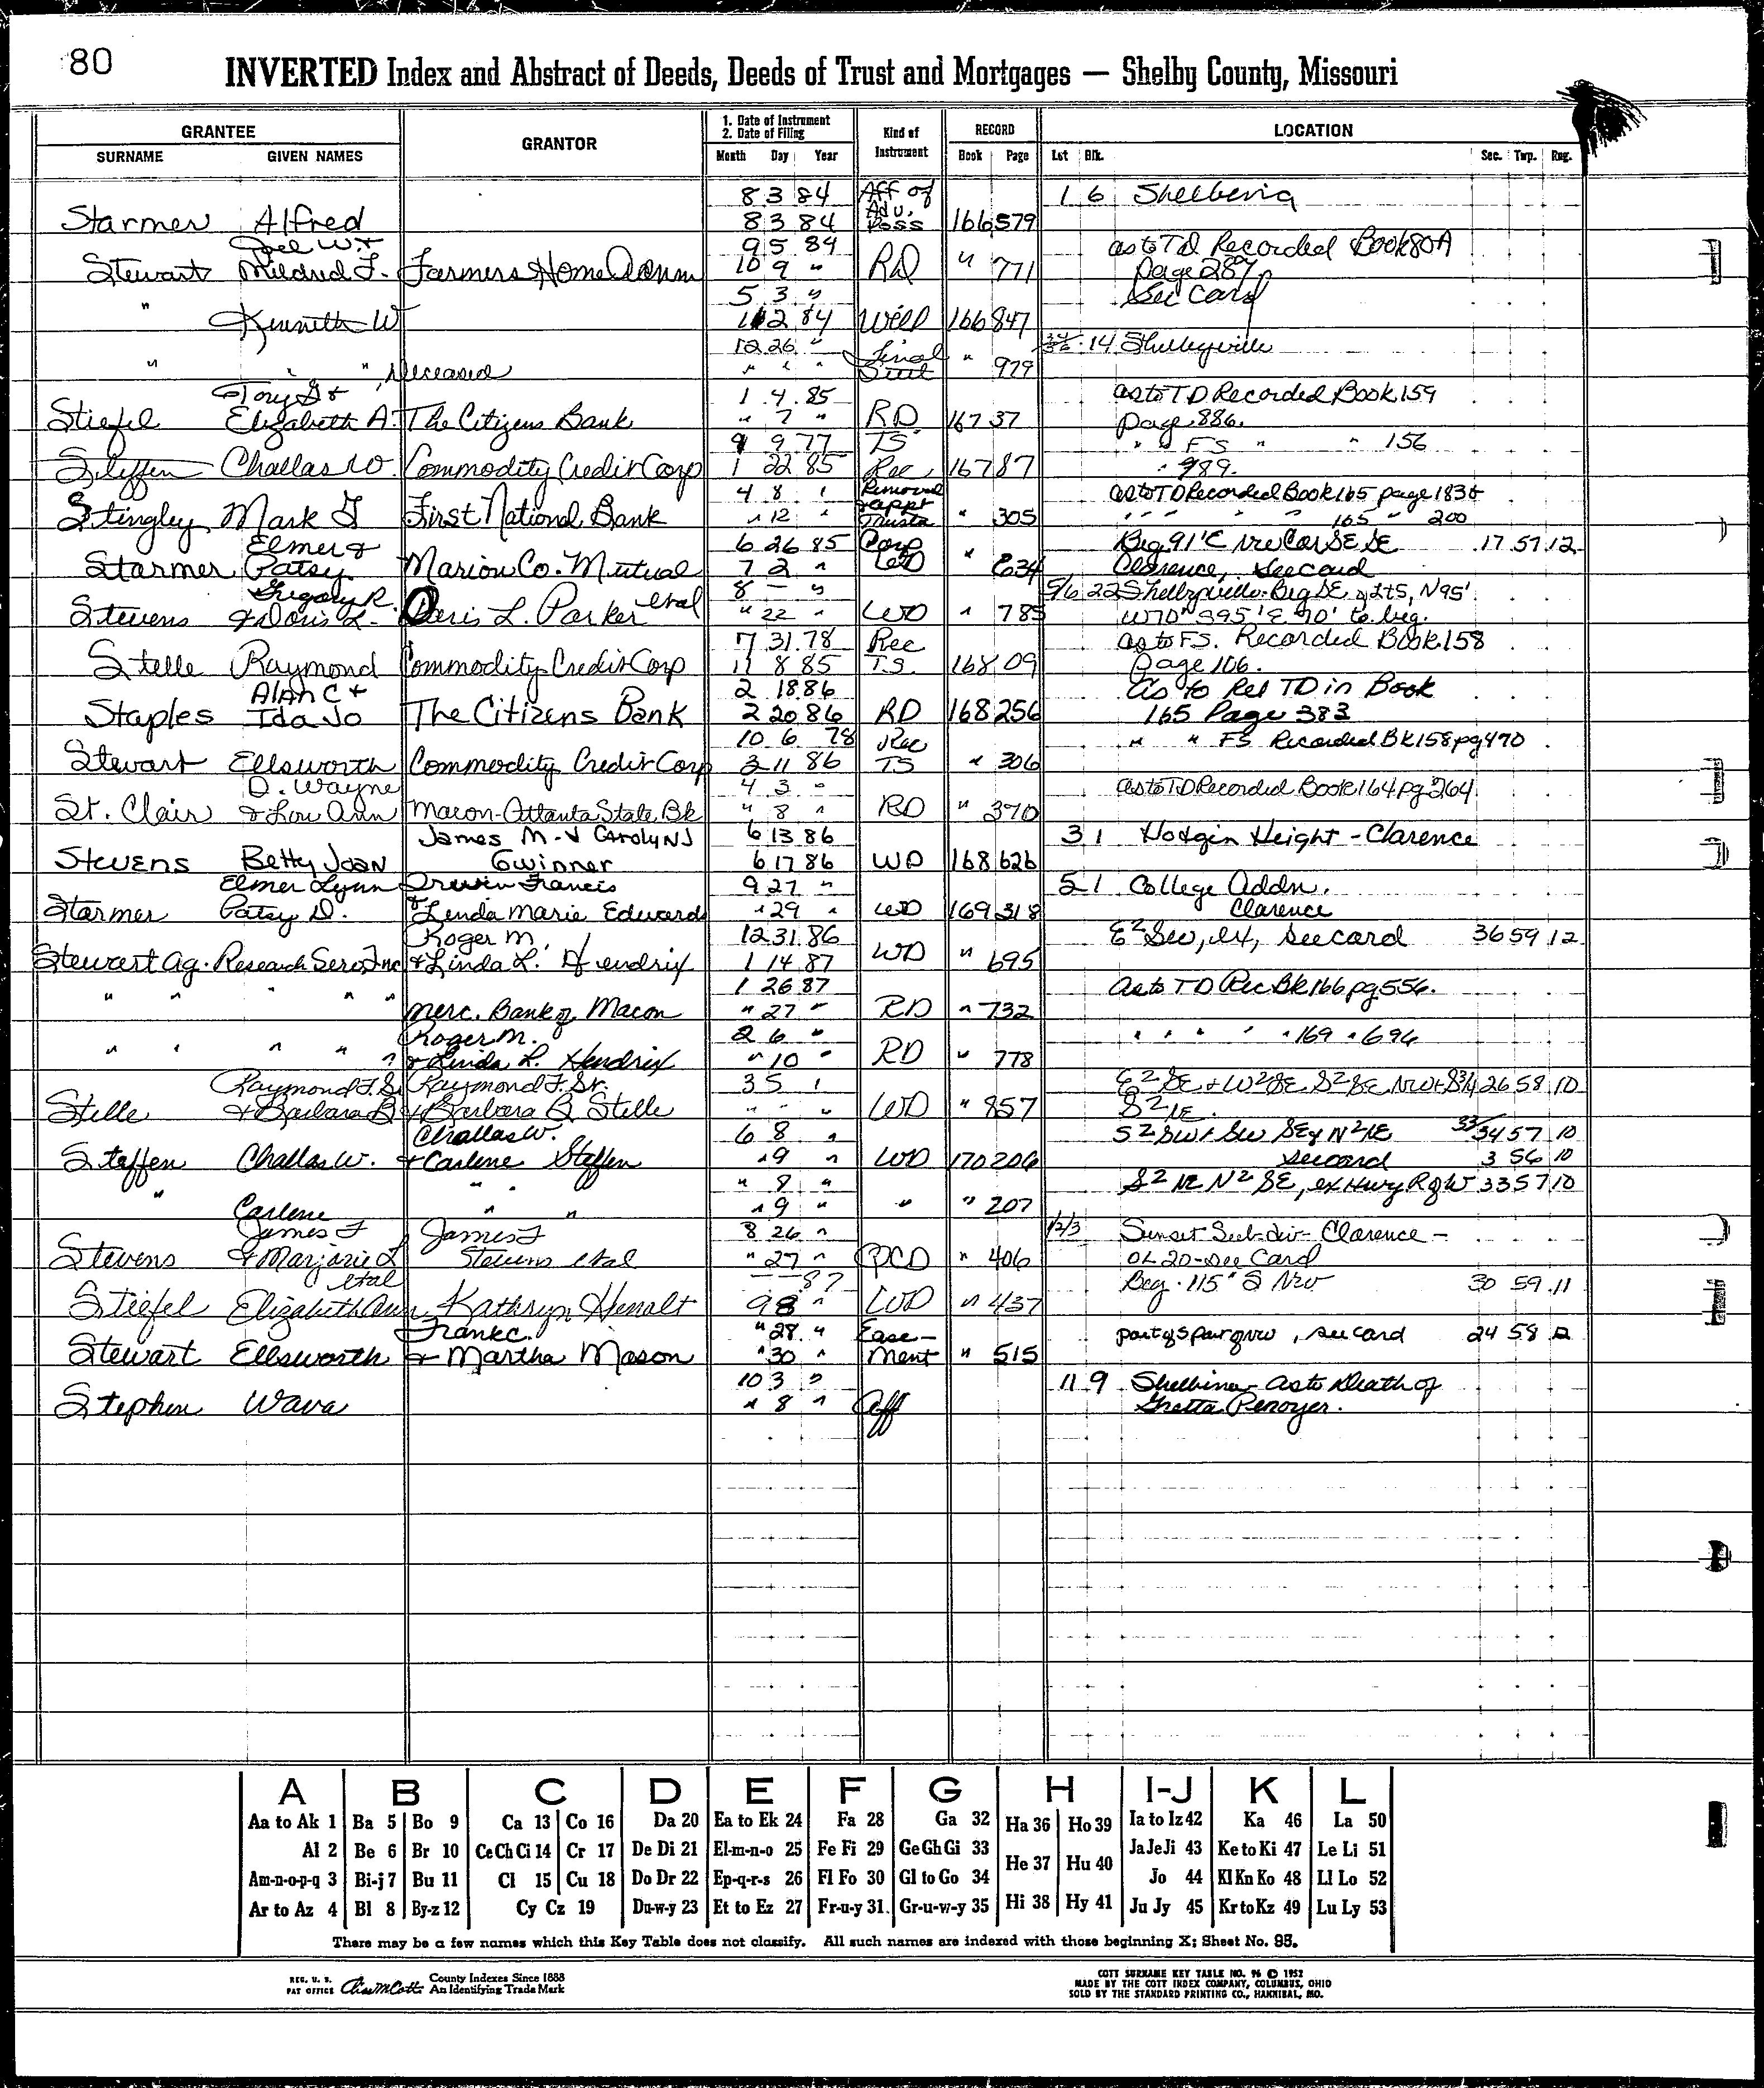 80
INVERTED Index and Abstract of Deeds, Deeds of Trust and Mortgages — Shelby County, Missouri
GRANTEE GRANTOR 1. Date of Instrument 2. Date of Filing Kind of Instrument RECORD LOCATION
SURNAME GIVEN NAMES Month Day Year Book Page Lot Blk. Sec. Twp. Rng.
8 3 84 Aff of 1 6 Shelbina
Starmer Alfred 8 3 84 Adv. Poss 166 579
Joel W + 9 5 84 as to TD Recorded Book 80A
Stewart Mildred F. Farmers Home Admn 10 9 " RD " 771 page 287
5 3 " See Card
" Kenneth W 11 2 84 Will 166 847
12 26 " Final 14 Shelbyville
" " ", Deceased " " " Settl " 979
Tony G + 1 4 85 as to TD Recorded Book 159
Stiefel Elizabeth A. The Citizens Bank " 7 " RD 167 37 page 886.
9 9 77 TS " " FS " " 156
Steffen Challas W. Commodity Credit Corp 1 22 85 Rec 167 87 " 989.
4 8 " Removal as to TD Recorded Book 165 page 183 &
Stingley Mark J First National Bank " 12 " & appt Trustee " 305 " " " " 165 " 200
Elmer & 6 26 85 Corp Beg 91' E NW Cor SE SE 17 57 12
Starmer Patsy Marion Co. Mutual 7 2 " WD " 634 Clarence, see card
Gregory R. 8 — " 5/6 22 Shelbyville: Beg SE of Lt 5, N95'
Stevens & Doris L. Doris L. Parker etal " 22 " WD " 785 W70" S95' E 70' to beg.
7 31 78 Rec as to F.S. Recorded Book 158
Stelle Raymond Commodity Credit Corp 11 8 85 T.S. 168 09 page 106.
Alan C + 2 18 86 as to Rel TD in Book
Staples Ida Jo The Citizens Bank 2 20 86 RD 168 256 165 Page 383
10 6 78 Rec " " FS Recorded BK 158 pg 470
Stewart Ellsworth Commodity Credit Corp 3 11 86 TS " 306
D. Wayne 4 3 " as to TD Recorded Book 164 pg 264
St. Clair & Lou Ann Macon-Atlanta State Bk " 8 " RD " 370
James M. & Carolyn J 6 13 86 3 1 Hodgin Height - Clarence
Stevens Betty Joan Gwinner 6 17 86 WD 168 626
Elmer Lynn Irwin Francis 9 27 " 5 1 College Addn.
Starmer Patsy D. & Linda Marie Edwards " 29 " WD 169 318 Clarence
Roger M. 12 31 86 E2 SW, ex, see card 36 59 12
Stewart Ag. Research Serv. Inc & Linda L. Hendrix 1 14 87 WD " 695
" " " " " 1 26 87 as to TD Rec Bk 166 pg 556.
Merc. Bank of Macon " 27 " RD " 732
Roger M. 2 6 " " " " " " 169 " 696
" " " " " & Linda L. Hendrix " 10 " RD " 778
Raymond F. Sr Raymond F. Sr. 3 5 " E2 SE & W2 SE, S2 SE NW & 26 58 10
Stelle & Barbara B & Barbara B. Stelle " " " WD " 857 S2 NE.
Challas W. 6 8 " S2 SW & SW SE & N2 NE 33/34 57 10
Steffen Challas W. & Carlene Steffen " 9 " WD 170 206 see card 3 56 10
" " " " 8 " S2 NE N2 SE, ex Hwy R of W 33 57 10
Carlene " " " 9 " " " 207
James F James F 8 26 " 1/2/3 Sunset Sub-div - Clarence -
Stevens & Marjorie L etal Stevens etal " 27 " QCD " 406 OL 20 - See Card
— — 87 Beg. 115" S NW 30 59 11
Stiefel Elizabeth Ann Kathryn Henalt 9 8 " WD " 437
Frank C. " 28 " Ease- part of S par of NW, see card 24 58 12
Stewart Ellsworth & Martha Mason " 30 " ment " 515
10 3 " 11 9 Shelbina - as to Death of
Stephen Wava " 8 " Aff Gretta Penoyer.
A B C D E F G H I-J K L
Aa to Ak 1 Ba 5 Bo 9 Ca 13 Co 16 Da 20 Ea to Ek 24 Fa 28 Ga 32 Ha 36 Ho 39 Ia to Iz 42 Ka 46 La 50
Al 2 Be 6 Br 10 Ce Ch Ci 14 Cr 17 De Di 21 El-m-n-o 25 Fe Fi 29 Ge Gh Gi 33 He 37 Hu 40 Ja Je Ji 43 Ke to Ki 47 Le Li 51
Am-n-o-p-q 3 Bi-j 7 Bu 11 Cl 15 Cu 18 Do Dr 22 Ep-q-r-s 26 Fl Fo 30 Gl to Go 34 Jo 44 Kl Kn Ko 48 Ll Lo 52
Ar to Az 4 Bl 8 By-z 12 Cy Cz 19 Du-w-y 23 Et to Ez 27 Fr-u-y 31. Gr-u-w-y 35 Hi 38 Hy 41 Ju Jy 45 Kr to Kz 49 Lu Ly 53
There may be a few names which this Key Table does not classify. All such names are indexed with those beginning X; Sheet No. 95.
REG. U. S. PAT OFFICE County Indexes Since 1888 An Identifying Trade Mark
COTT SURNAME KEY TABLE NO. 96 © 1952
MADE BY THE COTT INDEX COMPANY, COLUMBUS, OHIO
SOLD BY THE STANDARD PRINTING CO., HANNIBAL, MO.